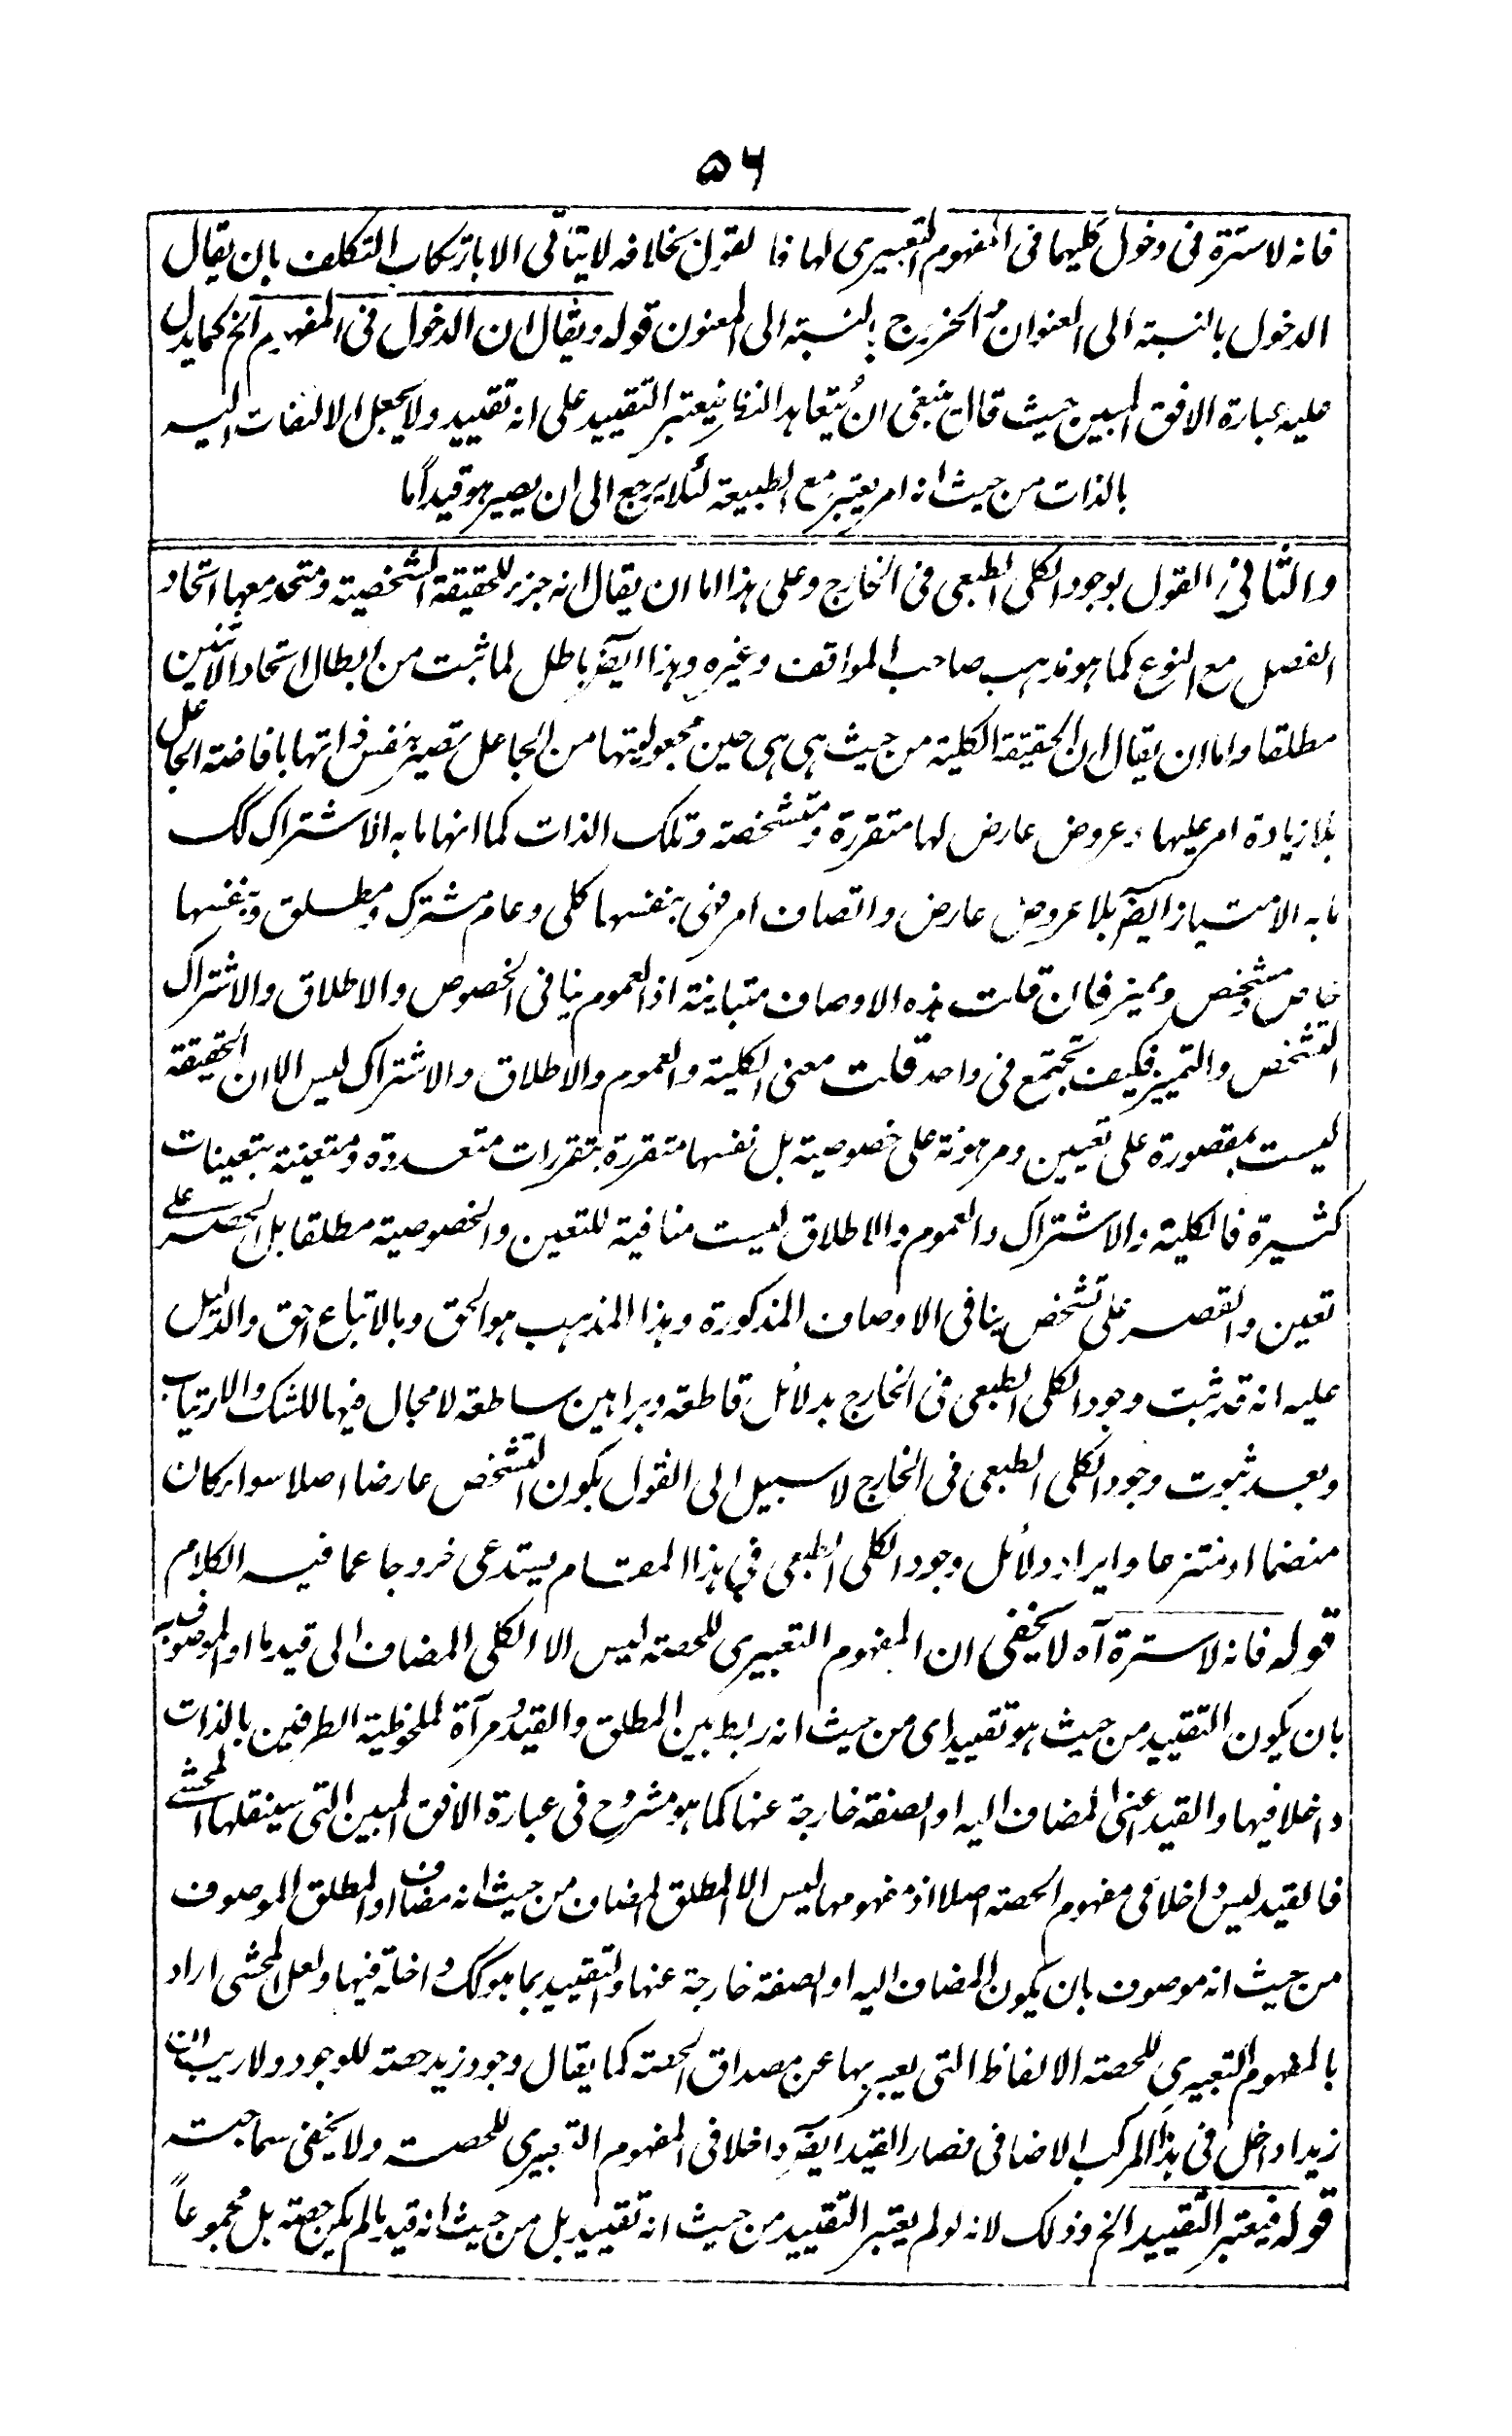 ۵۶
فانه لا سترة فى دخول كليهما فى المفهوم التعبيرى لها فا لقول بخلافه لا يتأتى الا بارتكاب التكلف بان يقال
الدخول بالنسبة الى العنوان والخروج بالنسبة الى المعنون قوله ويقال ان الدخول فى المفهوم الخ كما يدل
عليه عبارة الافق المبين حيث قال ينبغى ان يتعاهد النظر فيعتبر التقييد على انه تقييد ولا يجعل الالتفات اليه
بالذات من حيث انه امر يعتبر مع الطبيعة لئلا يرجع الى ان يصير هو قيدا ما
والثانى القول بوجود الكلى الطبعى فى الخارج وعلى هذا اما ان يقال انه جزء للحقيقة الشخصية ومتحد معها اتحاد
الفصل مع النوع كما هو مذهب صاحب المواقف وغيره وهذا ايضً باطل لما ثبت من ابطال اتحاد الاثنين
مطلقا واما ان يقال ان الحقيقة الكلية من حيث هى هى حين مجعوليتها من الجاعل تصير بنفس ذاتها بافاضة الجاعل
بلا زيادة امر عليها وعروض عارض لها متقررة ومتشخصة وتلك الذات كما انها ما به الاشتراك كك
ما به الامتياز ايضً بلا عروض عارض واتصاف امر فهى بنفسها كلى وعام مشترك ومطلق وبنفسها
خاص متشخص ومميز فان قلت هذه الاوصاف متباينة اذ العموم ينافى الخصوص والاطلاق والاشتراك
التشخص والتميز فكيف تجتمع فى واحد قلت معنى الكلية والعموم والاطلاق والاشتراك ليس الا ان الحقيقة
ليست بمقصورة على تعيين ومرهونة على خصوصية بل نفسها متقررة بتقررات متعددة ومتعينة بتعينات
كثيرة فالكلية والاشتراك والعموم والاطلاق ليست منافية للتعين والخصوصية مطلقا بل الحصر على
تعين والقصر على تشخص ينافى الاوصاف المذكورة وهذا المذهب هو الحق وبالاتباع احق والدليل
عليه انه قد ثبت وجود الكلى الطبعى فى الخارج بدلائل قاطعة وبراهين ساطعة لا مجال فيها للشك والارتياب
وبعد ثبوت وجود الكلى الطبعى فى الخارج لا سبيل الى القول بكون التشخص عارضا اصلا سواء كان
منضما او منتزعا وايراد دلائل وجود الكلى الطبعى فى هذا المقام يستدعى خروجا عما فيه الكلام
قوله فانه لا سترة آه لا يخفى ان المفهوم التعبيرى للحصة ليس الا الكلى المضاف الى قيد ما او الموصوف به
بان يكون التقييد من حيث هو تقييد اى من حيث انه ربط بين المطلق والقيد ومرآة لملحوظية الطرفين بالذات
داخلا فيها والقيد اعنى المضاف اليه او الصفة خارجة عنها كما هو مشروح فى عبارة الافق المبين التى سينقلها المحشى
فالقيد ليس داخلا فى مفهوم الحصة اصلا اذ مفهومها ليس الا المطلق المضاف من حيث انه مضاف او المطلق الموصوف
من حيث انه موصوف بان يكون المضاف اليه او الصفة خارجة عنها والتقييد بما هو كك داخلة فيها ولعل المحشى اراد
بالمفهوم التعبيرى للحصة الالفاظ التى يعبر بها عن مصداق الحصة كما يقال وجود زيد حصة للوجود ولا ريب ان
زيدا داخل فى هذا المركب الاضافى فصار القيد ايضً داخلا فى المفهوم التعبيرى للحصة ولا يخفى سماجته
قوله فيعتبر التقييد الخ وذلك لانه لو لم يعتبر التقييد من حيث انه تقييد بل من حيث انه قيد ما لم يكن حصة بل مجموعاً